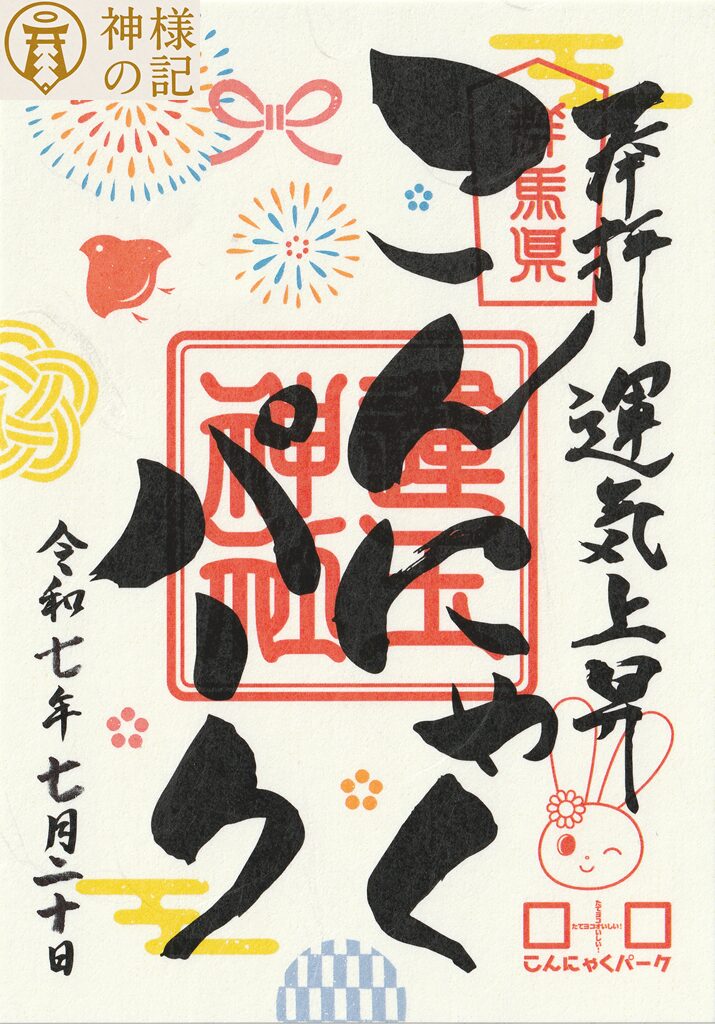 神様
の記
奉拝
運気上昇
群馬県
こんにゃく
パーク
神社
令和七年七月二十日
たてヨコおいしい!
たてヨコおいしい!
こんにゃくパーク